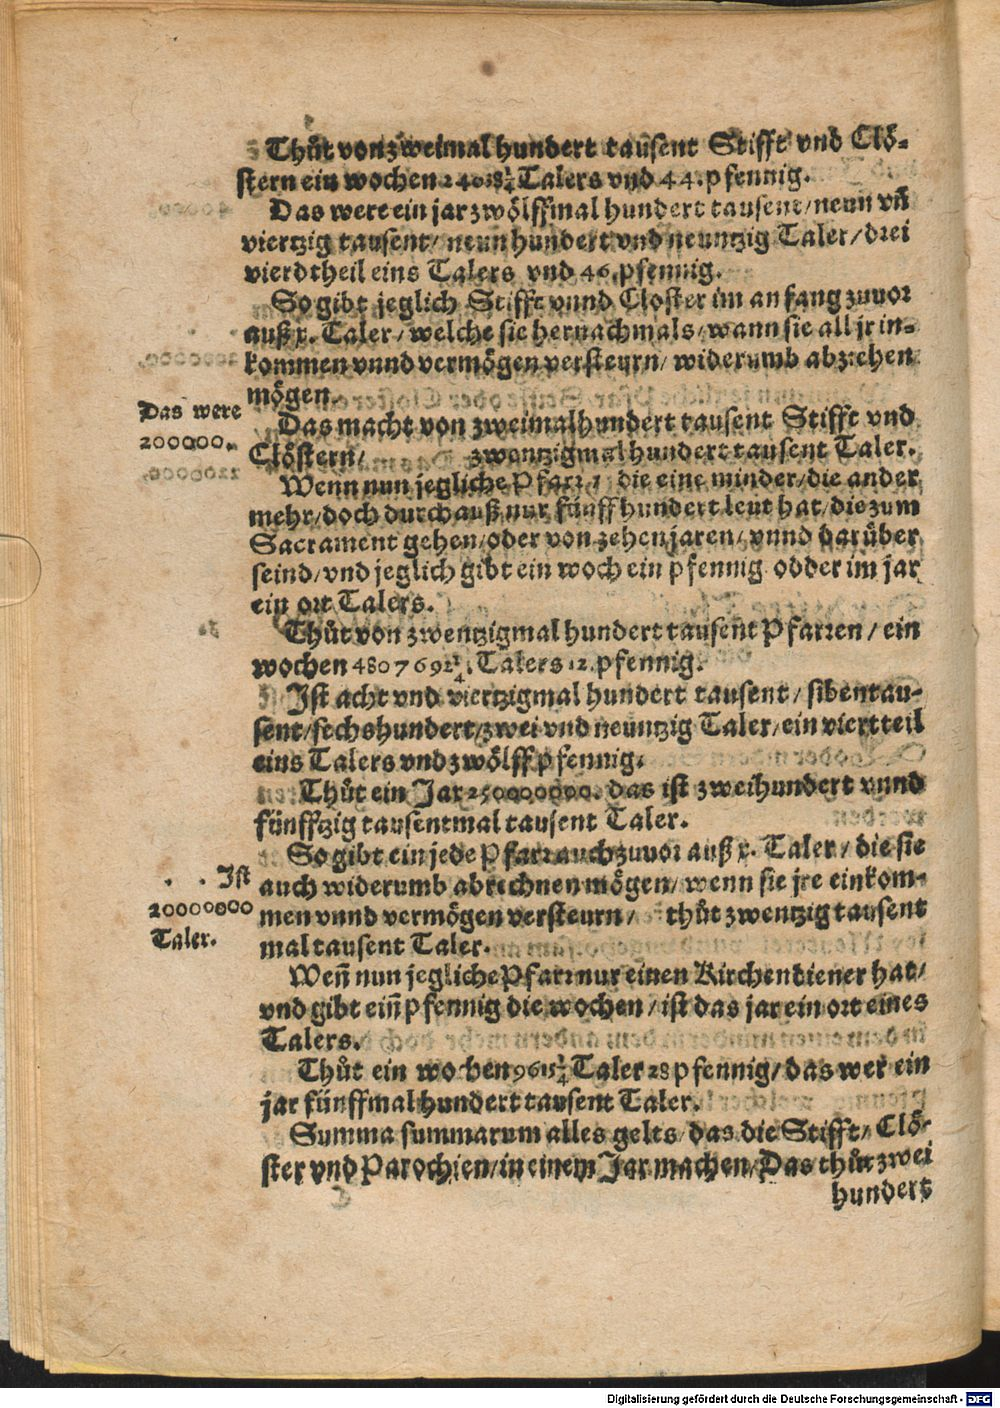 Thůt von zweimal hundert tausent Stifft vnd Clö-
stern ein wochen 24038¼ Talers vnd 44. pfennig.
Das were ein jar zwölffmal hundert tausent/ neun vñ
viertzig tausent/ neun hundert vnd neuntzig Taler/ drei
vierdtheil eins Talers vnd 46. pfennig.
So gibt jeglich Stifft vnnd Closter im anfang zuuor
auß x. Taler/ welche sie hernachmals/ wann sie all jr in-
kommen vnnd vermögen versteurn/ widerumb abziehen
mögen.
Das were
200000.
Das macht von zweimalhundert tausent Stifft vnd
Clöstern/ zwentzigmal hundert tausent Taler.
Wenn nun jegliche Pfarr/ die eine minder/ die ander
mehr/ doch durchauß nur fünff hundert leut hat/ die zum
Sacrament gehen/ oder von zehen jaren/ vnnd darüber
seind/ vnd jeglich gibt ein woch ein pfennig odder im jar
ein ort Talers.
Thůt von zwentzigmal hundert tausent Pfarren/ ein
wochen 4807692¼. Talers 12. pfennig.
Ist acht vnd viertzigmal hundert tausent/ sibentau-
sent/ sechshundert/ zwei vnd neuntzig Taler/ ein viertteil
eins Talers vnd zwölff pfennig.
Thůt ein Jar 250000000. das ist zweihundert vnnd
fünfftzig tausentmal tausent Taler.
So gibt ein jede Pfarr auch zuuor auß x. Taler/ die sie
auch widerumb abrechnen mögen/ wenn sie jre einkom-
men vnnd vermögen versteurn/ thůt zwentzig tausent
mal tausent Taler.
Ist
20000000
Taler.
Weñ nun jegliche Pfarr nur einen Kirchendiener hat/
vnd gibt eiñ pfennig die wochen/ ist das jar ein ort eines
Talers.
Thůt ein wochen 9615¼ Taler 28 pfennig/ das wer ein
jar fünffmal hundert tausent Taler.
Summa summarum alles gelts/ das die Stifft/ Clö-
ster vnd Parochien/ in einem Jar machen/ Das thůt zwei
hundert
Digitalisierung gefördert durch die Deutsche Forschungsgemeinschaft - DFG